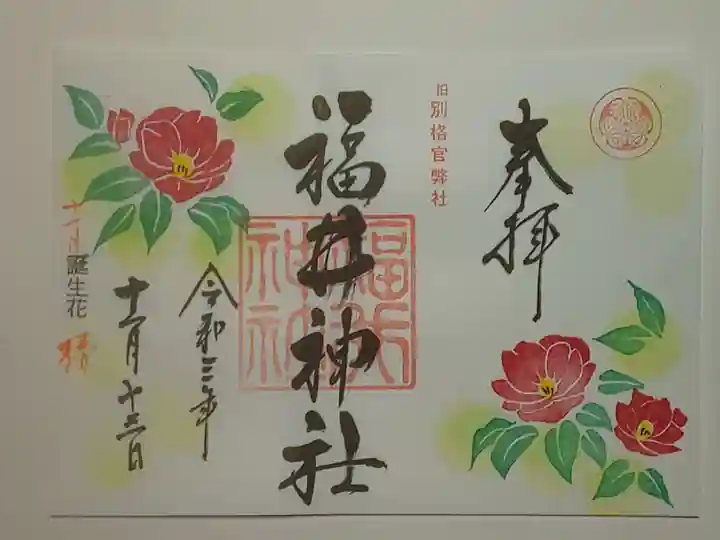 奉拝
旧別格官幣社
福井神社
令和三年
十一月十三日
十一月誕生花 椿